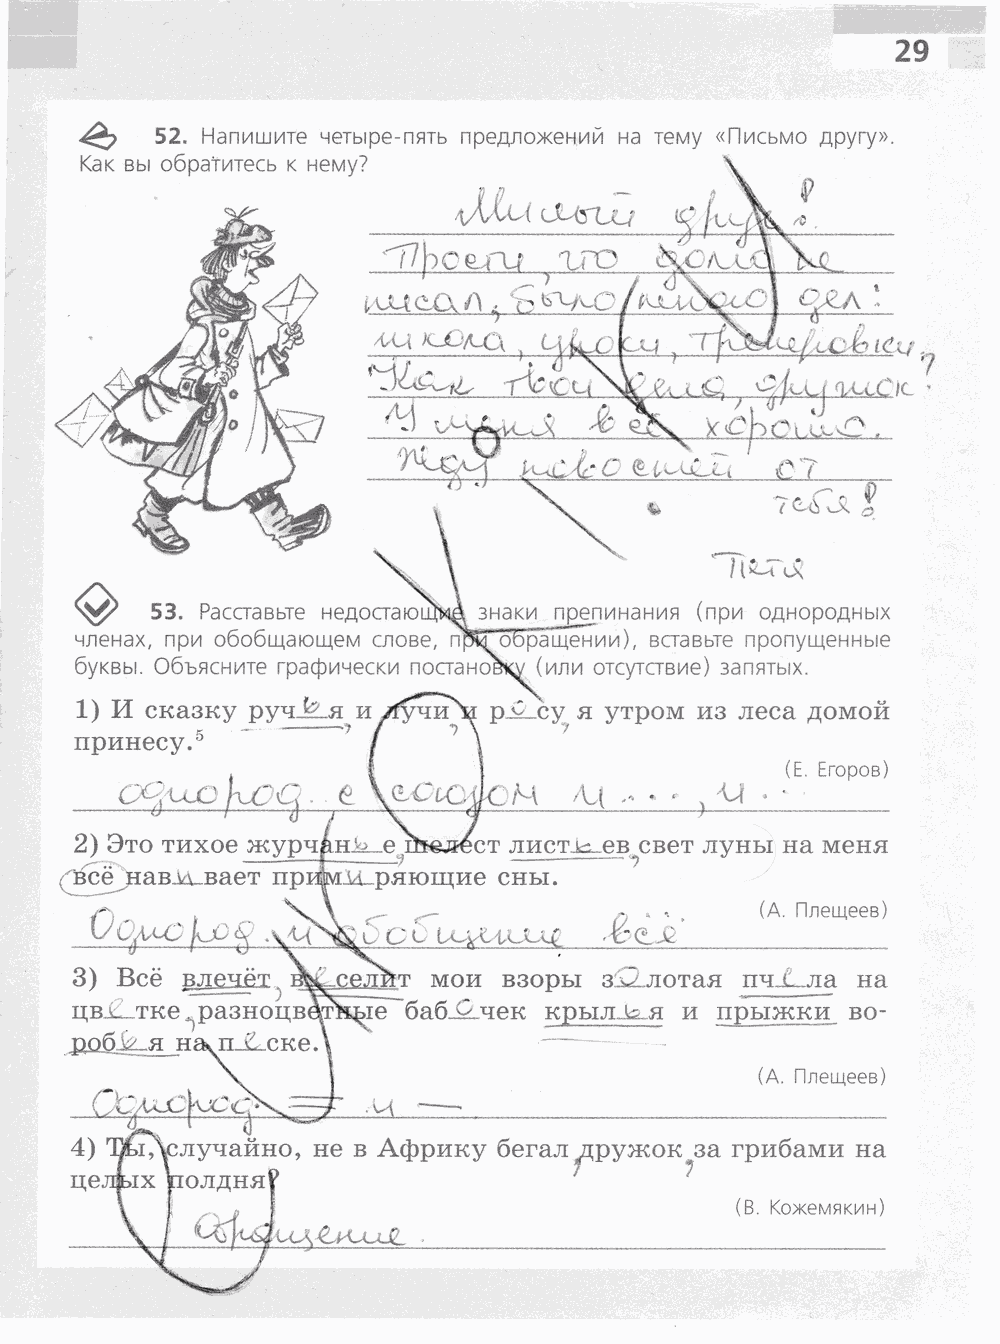 29
52. Напишите четыре-пять предложений на тему «Письмо другу».
Как вы обратитесь к нему?
Милый друг!
Прости, что долго не
писал, было много дел:
школа, уроки, тренировки.
Как твои дела, дружок?
У меня всё хорошо.
Жду новостей от
тебя!
Петя
53. Расставьте недостающие знаки препинания (при однородных
членах, при обобщающем слове, при обращении), вставьте пропущенные
буквы. Объясните графически постановку (или отсутствие) запятых.
1) И сказку ручья, и лучи, и росу, я утром из леса домой
принесу.⁵
(Е. Егоров)
однород. с союзом и ..., и ...
2) Это тихое журчанье, шелест листьев, свет луны на меня
всё навивает примиряющие сны.
(А. Плещеев)
Однород. и обобщение всё
3) Всё влечёт, веселит мои взоры золотая пчела на
цветке, разноцветные бабочек крылья и прыжки во-
робья на песке.
(А. Плещеев)
Однород. = и —
4) Ты, случайно, не в Африку бегал, дружок, за грибами на
целых полдня?
(В. Кожемякин)
Обращение.